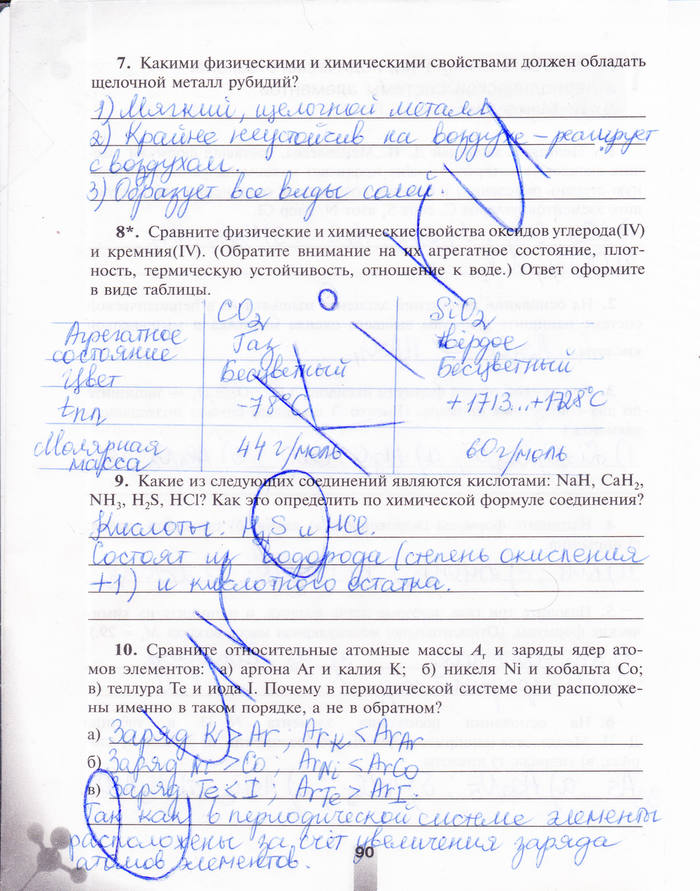 7. Какими физическими и химическими свойствами должен обладать
щелочной металл рубидий?
1) Мягкий, щелочной металл
2) Крайне неустойчив на воздухе – реагирует
с воздухом.
3) Образует все виды солей.
8*. Сравните физические и химические свойства оксидов углерода(IV)
и кремния(IV). (Обратите внимание на их агрегатное состояние, плот-
ность, термическую устойчивость, отношение к воде.) Ответ оформите
в виде таблицы.
CO₂ SiO₂
Агрегатное состояние Газ твёрдое
Цвет Бесцветный Бесцветный
tпл -78°C +1713...+1728°C
Молярная масса 44 г/моль 60 г/моль
9. Какие из следующих соединений являются кислотами: NaH, CaH₂,
NH₃, H₂S, HCl? Как это определить по химической формуле соединения?
Кислоты: H₂S и HCl.
Состоят из водорода (степень окисления
+1) и кислотного остатка.
10. Сравните относительные атомные массы Aᵣ и заряды ядер ато-
мов элементов: а) аргона Ar и калия K; б) никеля Ni и кобальта Co;
в) теллура Te и иода I. Почему в периодической системе они расположе-
ны именно в таком порядке, а не в обратном?
а) Заряд K > Ar; ArK < ArAr
б) Заряд Ni > Co; ArNi < ArCo
в) Заряд Te < I; ArTe > ArI.
Так как в периодической системе элементы
расположены за счёт увеличения заряда
атомов элементов.
90